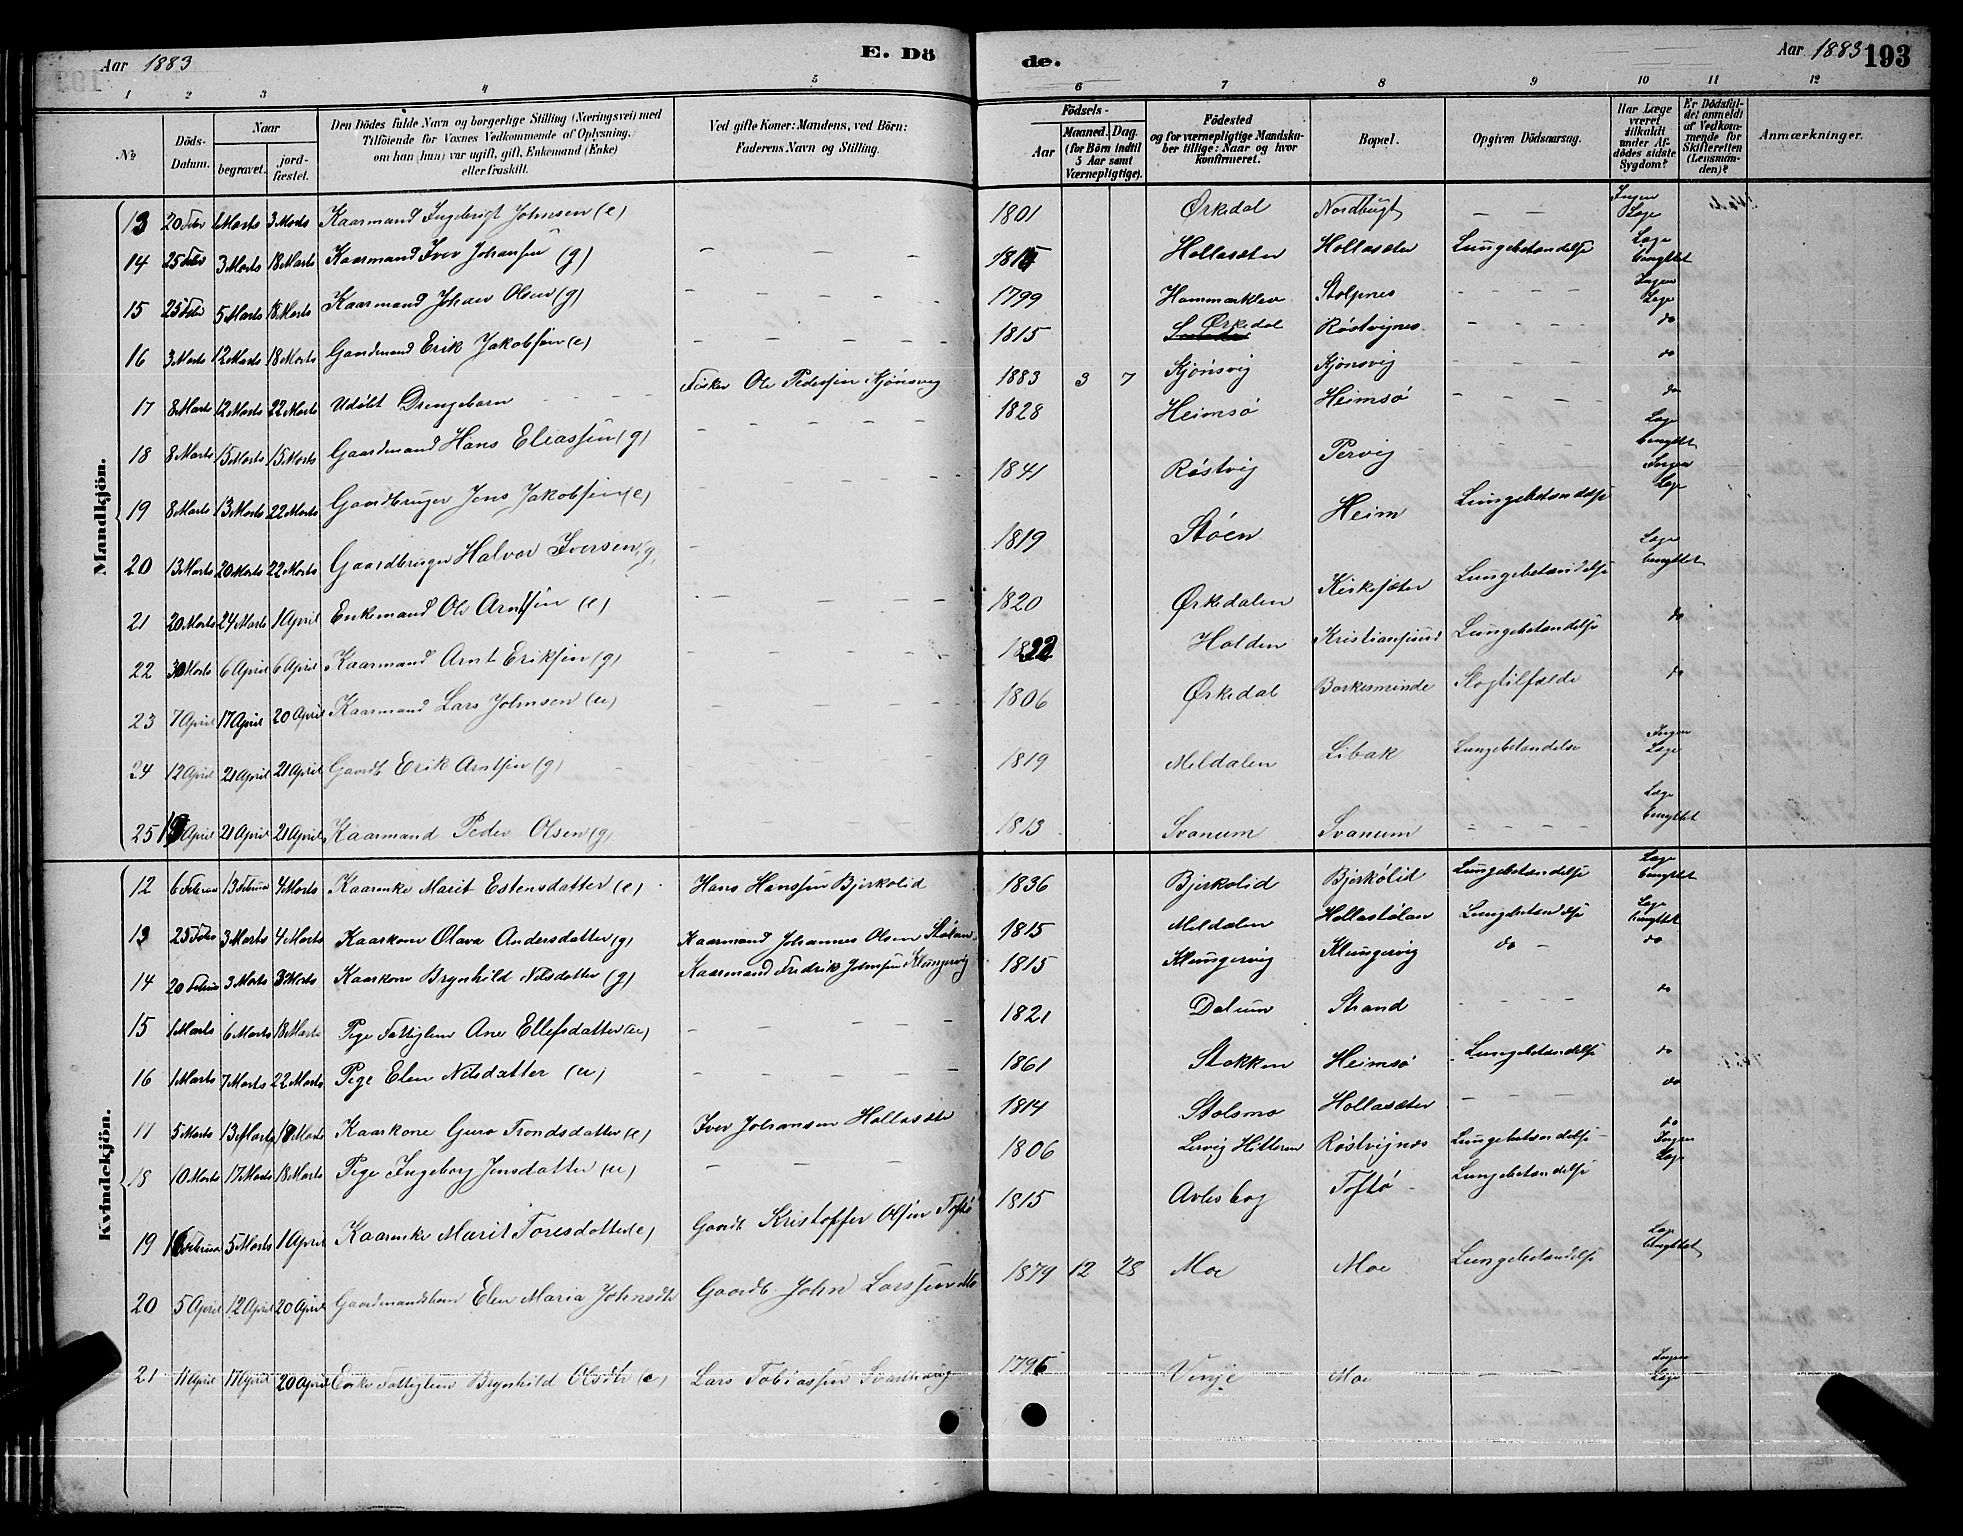 Aar 1883
E. Dö
de.
Aar 1883 193
1 2 3 4 5 6 7 8 9 10 11 12
No
Döds-Datum.
Naar
begravet.
jord-fæstet.
Den Dödes fulde Navn og borgerlige Stilling (Næringsvei) med
Tilföiende for Voxnes Vedkommende af Oplysning,
om han (hun) var ugift, gift, Enkemand (Enke)
eller fraskilt.
Ved gifte Koner: Mandens, ved Börn:
Faderens Navn og Stilling.
Födsels-
Aar
Maaned. Dag.
(for Börn indtil
5 Aar samt
Værnepligtige).
Födested
og for værnepligtige Mandska-
ber tillige: Naar og hvor
konfirmeret.
Bopæl.
Opgiven Dödsaarsag.
Har Læge
været
tilkaldt
under Af-
dödes sidste
Sygdom?
Er Dödsfal-
det anmeldt
af Vedkom-
mende for
Skifteretten
(Lensman-
den)?
Anmærkninger.
Mandkjön.
13 20 Febr 1 Marts 3 Marts Kaarmand Ingebrigt Johnsen (e) 1801 Ørkedal Nordbugt — — Ingen Læge
14 25 Febr 3 Marts 18 Marts Kaarmand Iver Johansen (g) — — — Hollasæter Hollasæter Lungebetændelse Læge benyttet
15 25 Febr 5 Marts 18 Marts Kaarmand Johan Olsen (g) — — — — — 1799 Hammarklev Stolpnes — — — — Ingen Læge
16 3 Marts 12 Marts 18 Marts Gaardmand Erik Jakobsen (e) — — — — — 1815 Ørkedal Røstvignes — — — — do
17 8 Marts 12 Marts 22 Marts Udøbt Drengebarn Fisker Ole Pedersen Kjønsvig 1883 3 7 Kjønsvig Kjønsvig — — — do
18 8 Marts 15 Marts 15 Marts Gaardmand Hans Eliassen (g) — — — — — 1828 Heimsø Heimsø — — — — do
19 8 Marts 13 Marts 22 Marts Gaardbruger Jens Jakobsen (e) — — — — 1841 Røstvig Pervig — — — Læge benyttet
20 13 Marts 20 Marts 22 Marts Gaardbruger Halvor Iversen (g) — — — 1819 Støen Heim Lungebetændelse Ingen Læge
21 20 Marts 24 Marts 1 April Enkemand Ole Arntsen (e) — — — — 1820 Ørkedalen Kirksæter Lungebetændelse Læge benyttet
22 30 Marts 6 April 6 April Kaarmand Arnt Eriksen (g) — — — — Holden Kristiansund Lungebetændelse do
23 7 April 17 April 20 April Kaarmand Lars Johnsen (u) — — — — 1806 Ørkedal Barkesminde Slagtilfælde do
24 12 April 21 April 21 April Gaardb Erik Arntsen (g) 1819 Meldalen Libak Lungebetændelse Ingen Læge
25 April 21 April 21 April Kaarmand Peder Olsen (g) 1813 Svanum Svanum — — — — Læge benyttet
Kvindekjön.
12 6 Februar 13 Februar 4 Marts Kaarenke Marit Estensdatter (e) Hans Hanssen Bjerkolid 1836 Bjerkolid Bjerkölid Lungebetændelse Læge benyttet
13 25 Febr 3 Marts 4 Marts Kaarkone Olava Andersdatter (g) Kaarmand Johannes Olsen Stølan 1815 Meldalen Hollastølan Lungebetændelse Læge benyttet
14 20 Februar 3 Marts 3 Marts Kaarkone Brynhild Nilsdatter (g) Kaarmand Fredrik Johnsen Klungervig 1815 Klungervig Klungervig do — do
15 1 Marts 6 Marts 18 Marts Pige Fattiglem Ane Ellefsdatter (u) — — — — — 1821 Dalum Strand — — — — do
16 1 Marts 7 Marts 22 Marts Pige Elen Nilsdatter (u) — — — — — 1861 Stokken Heimsø Lungebetændelse do
17 5 Marts 13 Marts 18 Marts Kaarkone Guro Trondsdatter (e) Iver Johansen Hollasæter 1814 Stolsmo Hollasæter — — — — do
18 10 Marts 17 Marts 18 Marts Pige Ingeborg Jensdatter (u) — — — 1806 Lervig Hitteren Røstvignes Lungebetændelse do
19 Februar 5 Marts 1 April Kaarenke Marit Toresdatter (e) Gaardb Kristoffer Olsen Toftø 1815 Toftø Lungebetændelse Ingen Læge
20 5 April 12 April 20 April Gaardmandsbarn Elen Maria Johnsdtr Gaardb. John Larssen Mo 1879 12 28 Moe Moe Lungebetændelse Læge benyttet
21 11 April 17 April 20 April Enke Fattiglem Brynhild Olsdtr (e) Lars Tobiassen 1796 Vinje Moe — — — Ingen Læge